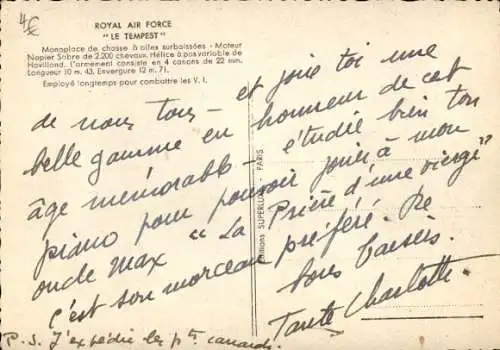 4€
ROYAL AIR FORCE
" LE TEMPEST "
Monoplace de chasse à ailes surbaissées - Moteur
Napier Sabre de 2.200 chevaux. Hélice à pas variable de
Havilland. L'armement consiste en 4 canons de 22 mm.
Longueur 10 m. 43. Envergure 12 m. 71.
Employé longtemps pour combattre les V. I.
de nous tous - et joue toi une
belle gamme en honneur de cet
âge mémorable - étudie bien ton
piano pour pouvoir jouer à mon
oncle Max " La Prière d'une vierge"
C'est son morceau préféré. De
bons baisers.
Tante Charlotte.
P.S. J'expédie les pts canards.
Editions SUPERLUX - PARIS